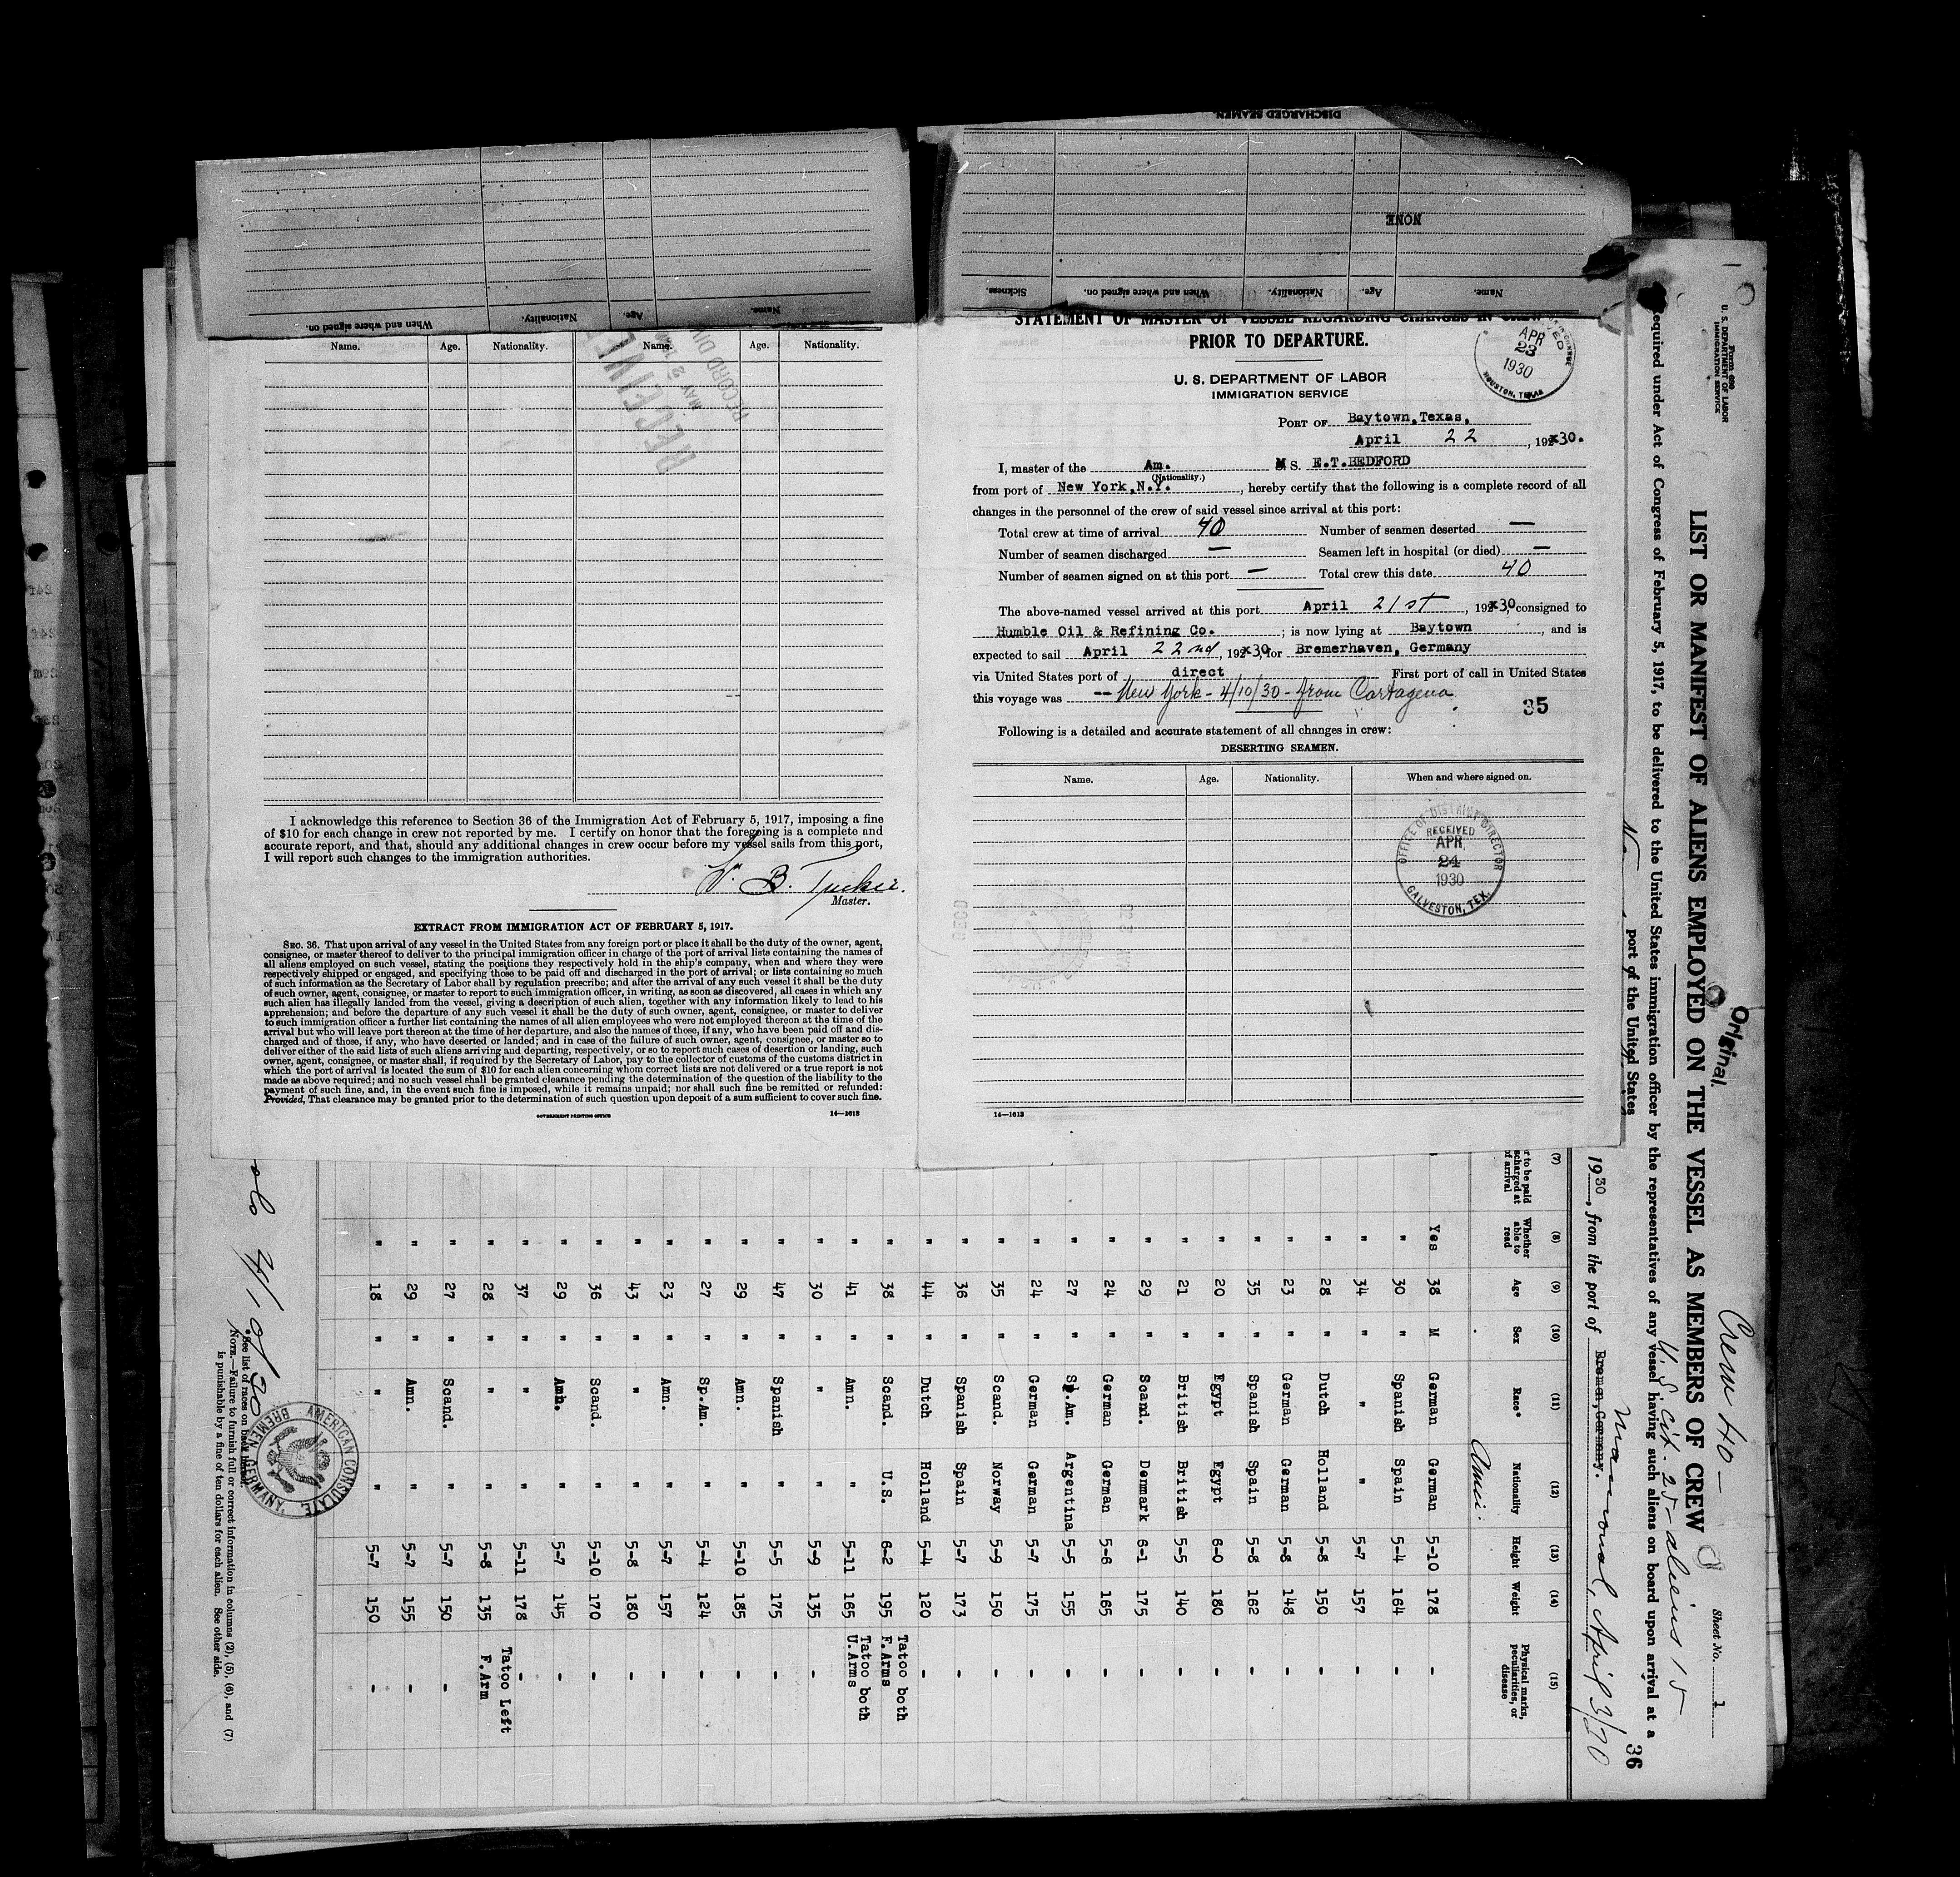 DISCHARGED SEAMEN
NONE
Name. Age. Nationality. When and where signed on. Sickness.
Name. Age. Nationality. When and where signed on.
Name. Age. Nationality. Name. Age. Nationality.
RECEIVED
MAY 2
RECORD DIV
I acknowledge this reference to Section 36 of the Immigration Act of February 5, 1917, imposing a fine
of $10 for each change in crew not reported by me. I certify on honor that the foregoing is a complete and
accurate report, and that, should any additional changes in crew occur before my vessel sails from this port,
I will report such changes to the immigration authorities.
B. Tucker.
Master.
EXTRACT FROM IMMIGRATION ACT OF FEBRUARY 5, 1917.
SEC. 36. That upon arrival of any vessel in the United States from any foreign port or place it shall be the duty of the owner, agent,
consignee, or master thereof to deliver to the principal immigration officer in charge of the port of arrival lists containing the names of
all aliens employed on such vessel, stating the positions they respectively hold in the ship's company, when and where they were
respectively shipped or engaged, and specifying those to be paid off and discharged in the port of arrival; or lists containing so much
of such information as the Secretary of Labor shall by regulation prescribe; and after the arrival of any such vessel it shall be the duty
of such owner, agent, consignee, or master to report to such immigration officer, in writing, as soon as discovered, all cases in which any
such alien has illegally landed from the vessel, giving a description of such alien, together with any information likely to lead to his
apprehension; and before the departure of any such vessel it shall be the duty of such owner, agent, consignee, or master to deliver
to such immigration officer a further list containing the names of all alien employees who were not employed thereon at the time of the
arrival but who will leave port thereon at the time of her departure, and also the names of those, if any, who have been paid off and dis-
charged and of those, if any, who have deserted or landed; and in case of the failure of such owner, agent, consignee, or master so to
deliver either of the said lists of such aliens arriving and departing, respectively, or so to report such cases of desertion or landing, such
owner, agent, consignee, or master shall, if required by the Secretary of Labor, pay to the collector of customs of the customs district in
which the port of arrival is located the sum of $10 for each alien concerning whom correct lists are not delivered or a true report is not
made as above required; and no such vessel shall be granted clearance pending the determination of the question of the liability to the
payment of such fine, and, in the event such fine is imposed, while it remains unpaid; nor shall such fine be remitted or refunded:
Provided, That clearance may be granted prior to the determination of such question upon deposit of a sum sufficient to cover such fine.
GOVERNMENT PRINTING OFFICE 14—1613
STATEMENT OF MASTER OF VESSEL REGARDING CHANGES IN CREW
PRIOR TO DEPARTURE.
APR
23
1930
HOUSTON, TEXAS
U. S. DEPARTMENT OF LABOR
IMMIGRATION SERVICE
PORT OF Baytown,Texas,
April 22, 192x30.
I, master of the Am. M S. E.T.BEDFORD
(Nationality.)
from port of New York,N.Y., hereby certify that the following is a complete record of all
changes in the personnel of the crew of said vessel since arrival at this port:
Total crew at time of arrival 40 Number of seamen deserted —
Number of seamen discharged — Seamen left in hospital (or died) —
Number of seamen signed on at this port — Total crew this date 40
The above-named vessel arrived at this port April 21st, 192x30, consigned to
Humble Oil & Refining Co.; is now lying at Baytown, and is
expected to sail April 22nd, 192x30, for Bremerhaven, Germany
via United States port of direct First port of call in United States
this voyage was -- New York - 4/10/30 - from Cartagena
35
Following is a detailed and accurate statement of all changes in crew:
DESERTING SEAMEN.
Name. Age. Nationality. When and where signed on.
OFFICE OF DISTRICT DIRECTOR
RECEIVED
APR
24
1930
GALVESTON, TEX.
14—1613
Form 689
U. S. DEPARTMENT OF LABOR
IMMIGRATION SERVICE
Original.
Crew 40 —
U.S. cit. 25 - aliens 15
Sheet No. 1
LIST OR MANIFEST OF ALIENS EMPLOYED ON THE VESSEL AS MEMBERS OF CREW
Required under Act of Congress of February 5, 1917, to be delivered to the United States immigration officer by the representatives of any vessel having such aliens on board upon arrival at a
port of the United States
36
1930, from the port of Bremen,Germany. April 3/30
(7) (8) (9) (10) (11) (12) (13) (14) (15)
Whether able to read Age Sex Race* Nationality Height Weight Physical marks, peculiarities, or disease
Yes 38 M German German 5-10 178 -
" 30 " Spanish Spain 5-4 164 -
" 34 " " " 5-7 157 -
" 28 " Dutch Holland 5-8 150 -
" 23 " German German 5-8 148 -
" 35 " Spanish Spain 5-8 162 -
" 20 " Egypt Egypt 6-0 180 -
" 21 " British British 5-5 140 -
" 29 " Scand. Denmark 6-1 175 -
" 24 " German German 5-6 165 -
" 27 " Sp.Am. Argentina 5-5 155 -
" 24 " German German 5-7 175 -
" 35 " Scand. Norway 5-9 150 -
" 36 " Spanish Spain 5-7 173 -
" 44 " Dutch Holland 5-4 120 -
" 38 " Scand. U.S. 6-2 195 Tatoo both F.Arms
" 41 " Amn. " 5-11 165 Tatoo both U.Arms
" 30 " " " 5-9 135 -
" 47 " Spanish " 5-5 175 -
" 29 " Amn. " 5-10 185 -
" 27 " Sp.Am. " 5-4 124 -
" 23 " Amn. " 5-7 157 -
" 43 " " " 5-8 180 -
" 36 " Scand. " 5-10 170 -
" 29 " Amn. " 5-7 145 -
" 37 " " " 5-11 178 -
" 28 " " " 5-8 135 Tatoo Left F.Arm
" 27 " Scand. " 5-7 150 -
" 29 " Amn. " 5-7 155 -
" 18 " " " 5-7 150 -
*See list of races on back hereof.
NOTE.—Failure to furnish full or correct information in columns (2), (5), (6), and (7)
is punishable by a fine of ten dollars for each alien. See other side.
AMERICAN CONSULATE
BREMEN, GERMANY.